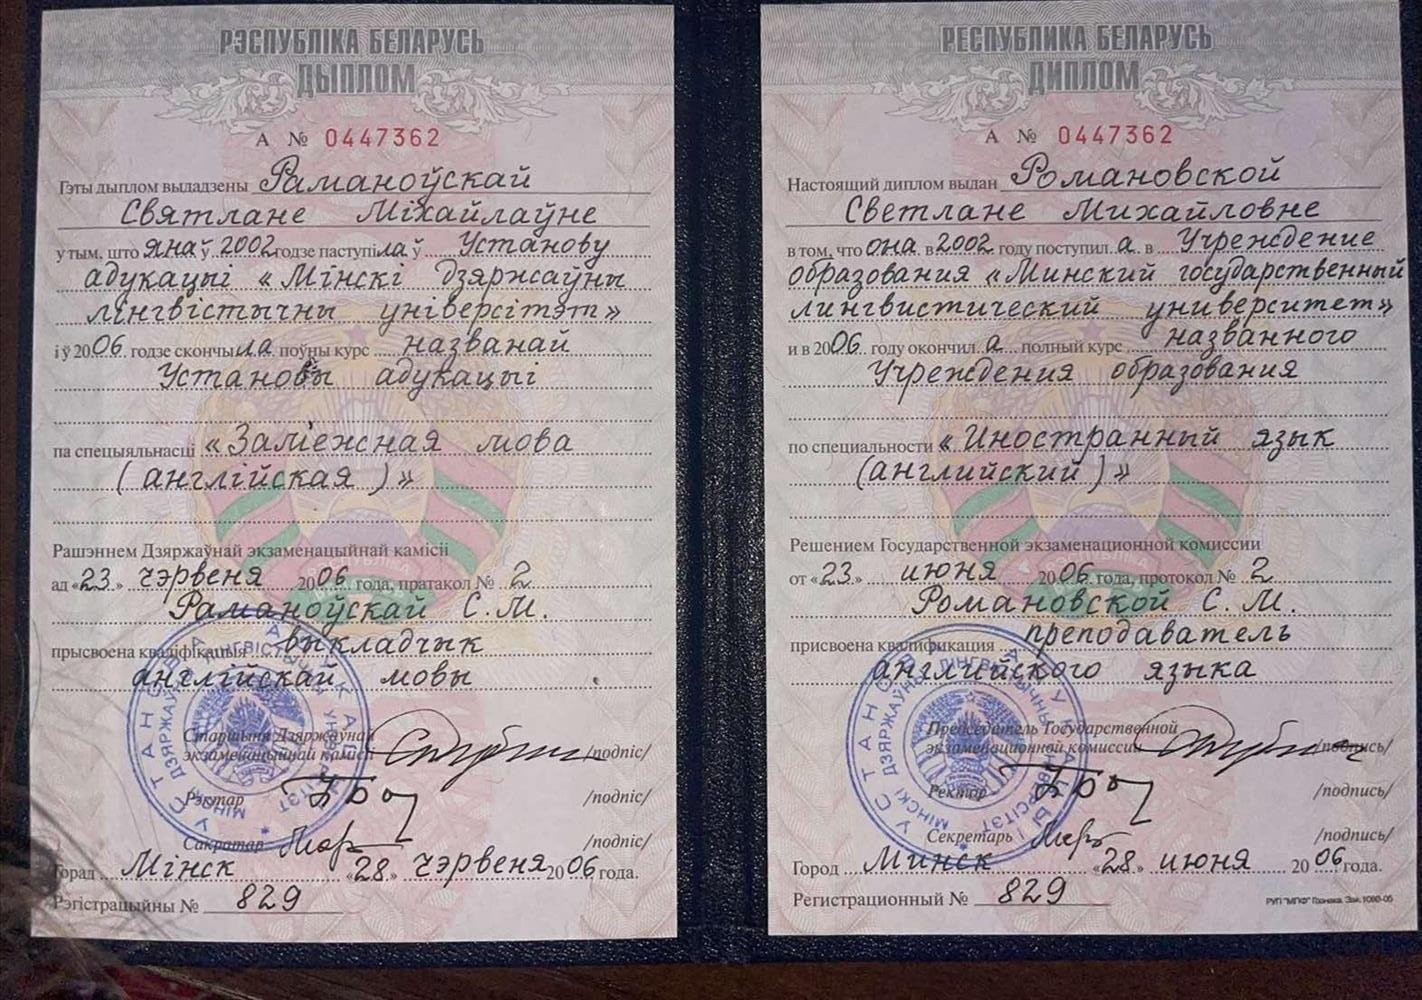 РЭСПУБЛІКА БЕЛАРУСЬ
ДЫПЛОМ
А № 0447362
Гэты дыплом выдадзены Раманоўскай
Святлане Міхайлаўне
у тым, што яна ў 2002 годзе паступіла ў Установу
адукацыі «Мінскі дзяржаўны
лінгвістычны універсітэт»
і ў 2006 годзе скончыла поўны курс названай
Установы адукацыі
па спецыяльнасці «Замежная мова
(англійская)»
Рашэннем Дзяржаўнай экзаменацыйнай камісіі
ад «23» чэрвеня 2006 года, пратакол № 2
Раманоўскай С.М.
прысвоена кваліфікацыя выкладчык
англійскай мовы
Старшыня Дзяржаўнай
экзаменацыйнай камісіі /подпіс/
Рэктар /подпіс/
Сакратар /подпіс/
Горад Мінск «28» чэрвеня 2006 года.
Рэгістрацыйны № 829
УСТАНОВА АДУКАЦЫІ
МІНСКІ ДЗЯРЖАЎНЫ ЛІНГВІСТЫЧНЫ УНІВЕРСІТЭТ
РЕСПУБЛИКА БЕЛАРУСЬ
ДИПЛОМ
А № 0447362
Настоящий диплом выдан Романовской
Светлане Михайловне
в том, что она в 2002 году поступил а в Учреждение
образования «Минский государственный
лингвистический университет»
и в 2006 году окончил а полный курс названного
Учреждения образования
по специальности «Иностранный язык
(английский)»
Решением Государственной экзаменационной комиссии
от «23» июня 2006 года, протокол № 2
Романовской С.М.
присвоена квалификация преподаватель
английского языка
Председатель Государственной
экзаменационной комиссии /подпись/
Ректор /подпись/
Секретарь /подпись/
Город Минск «28» июня 2006 года.
Регистрационный № 829
РУП "МПФ" Гознака. Зак. 1080-05
УСТАНОВА АДУКАЦЫІ
МІНСКІ ДЗЯРЖАЎНЫ ЛІНГВІСТЫЧНЫ УНІВЕРСІТЭТ